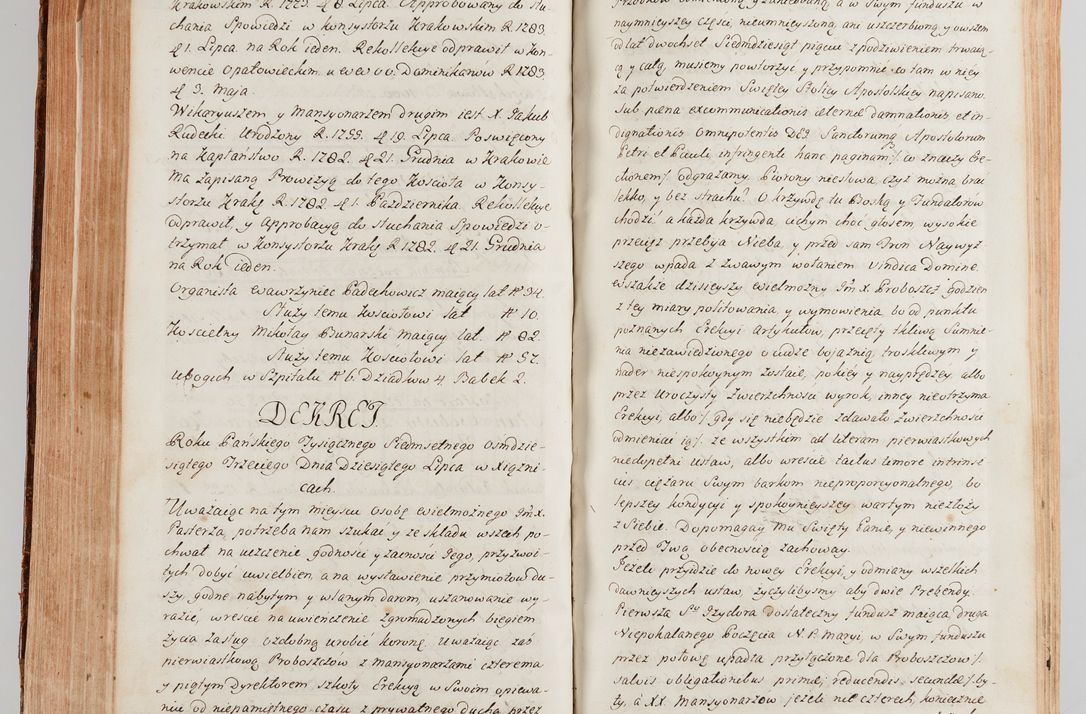 Krakowskim R. 1773. d. 8 Lipca. Approbowany do słu-
chania Spowiedzi w konsystorzu Krakowskim R. 1783.
d. 1. Lipca na Rok ieden. Rekollekcye odprawił w Kon-
wencie Opatowieckim u WW OO. Dominikanów R. 1783
d. 3. Maja.
Wikaryuszem y Mansyonarzem drugim iest X. Jakub
Rudecki Urodzony R. 1755. d. 19. Lipca. Poswięcony
na Kapłaństwo R. 1782. d. 21. Grudnia w Krakowie
Ma zapisaną Prowizyą do tego Kościoła w Konsy-
storzu Krakg R. 1782. d. 1. Października. Rekollekcye
odprawił, y approbacyą do słuchania Spowiedzi o-
trzymał w Konsystorzu Krakg R. 1782. d. 21. Grudnia
na Rok ieden.
Organista Wawrzyniec Padechowicz maiący lat N° 34.
Służy temu Kosciołowi lat N° 10.
Koscielny Mikołay Bunarski maiący lat N° 82.
Służy temu Kosciołowi lat N° 57.
Ubogich w Szpitalu N° 6. Dziadkow 4. Babek 2.
DEKRET.
Roku Pańskiego Tysiącznego Siedmsetnego Osmdzie-
siątego Trzeciego Dnia Dziesiątego Lipca w Xiązni-
cach.
Uważaiąc na tym mieyscu osobę Wielmożnego Jm X.
Pasterza, potrzeba nam szukać y ze składu wszech po-
chwał na uczczenie godnosci y zacnosci Jego, przyzwoi-
tych dobyć uwielbien, a na wystawienie przymiotow du-
szy, godne nabytym y własnym darom, uszanowanie wy-
razic, wreście na uwienczenie zgromadzonych biegiem
życia zasług ozdobną urobić koronę. Uważaiąc zaś
pierwiastkową Proboszczow z Mansyonarzami czterema
y piątym Dyrektorem szkoły Erekcyą w Swoim opiewa-
niu od niepamiętnego czasu z prywatnego ducha przez
naymnieyszey części, nieumnieyszoną, ani uszczerbioną, y owszem
od lat dwochset Siedmdziesiąt pięciu z podziwieniem trwaią-
cą y całą, musiemy powtorzyć y przypomnić co tam w niey
za potwierdzeniem Swiętey Stolicy Apostolskiey napisano.
Sub pæna excommunicationis æternæ damnationis, et in-
dignationis Omnipotentis DEI Sanctorumq Apostolorum
Petri et Pauli, infringente hanc paginam /: co znaczy Ere-
kcyonem :/ odgrażamy. Piorony niesłowa, czyż można brać
lekko, y bez strachu? O krzywdę tu Boską y Fundatorów
chodzi, a każda krzywda, cichym choć głosem, wysokie
przeciąż przebija Nieba, y przed sam Tron Naywyż-
szego wpada z żwawym wołaniem Vindica Domine.
Wszakże dzisieyszy Wielmożny Jm X. Proboszcz godzien
z tey miary politowania y wymowienia, bo od punktu
poznanych Erekcyi Artykułow, przecięty tkliwą Sumnie-
nia niezawiedzionego o cudze bojaznią troskliwym y
nader niespokoynym zostaie, pokiey y nayprędzey albo
przez Uroczysty Zwierzchnosci wyrok, inney nieotrzyma
Erekcyi, albo /: gdy się niebędzie zdawało Zwierzchnosci
odmieniać ią :/ że wszystkim ad literam pierwiastkowych
niedopełni ustaw, albo wreście tactus timore intrinse-
cus cięzaru Swym barkom nieproporcyonalnego, bo
lepszey kondycyi y spokoynieyszey wartym niezłoży
z Siebie. Dopomagay mu Swięty Panie, y niewinnego
przed Twą obecnoscią zachoway.
Jeżeli przydzie do nowey Erekcyi, y odmiany wszelkich
dawnieyszych ustaw, życzylibysmy aby dwie Prebendy.
Pierwsza Sgo Izydora dostateczny fundusz maiąca, druga
Niepokalanego Poczęcia N. P. Maryi, w Swym funduszu
przez połowę upadła przyłączone dla Proboszczow /:
salvis obligationibus primæ, reducendis, secundæ :/ by-
ły, a XX. Mansyonarzów jeżeli nie czterech, koniecznie